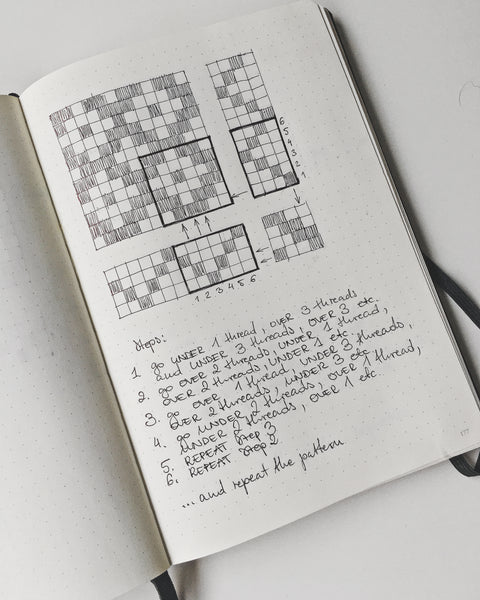 6
5
4
3
2
1
1 2 3 4 5 6
Steps:
1. go UNDER 1 thread, OVER 3 threads
and UNDER 3 threads, OVER 3 etc.
2. go OVER 2 threads, UNDER 1 thread,
OVER 2 threads, UNDER 1 etc.
3. go OVER 1 thread, UNDER 3 threads,
OVER 2 threads, UNDER 3 etc
4. go UNDER 2 threads, OVER 1 thread,
UNDER 2 threads, OVER 1 etc
5. REPEAT STEP 3
6. REPEAT STEP 2
... and repeat the pattern
177